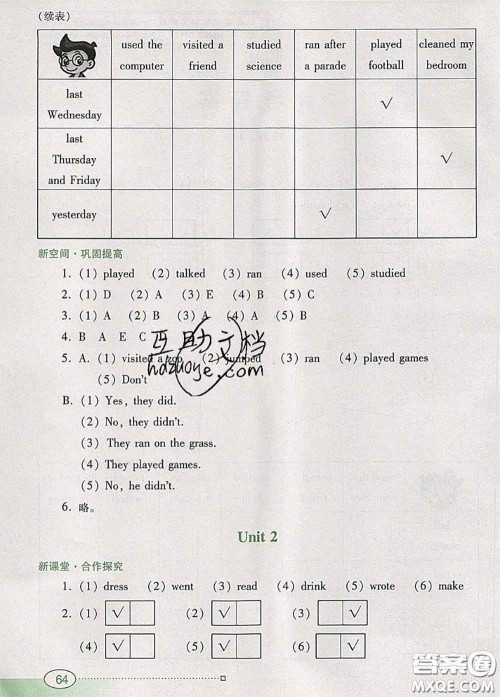 (续表)
used the computer visited a friend studied science ran after a parade played football cleaned my bedroom
last Wednesday √
last Thursday and Friday √
yesterday √
新空间·巩固提高
1. (1) played (2) talked (3) ran (4) used (5) studied
2. (1) D (2) A (3) E (4) B (5) C
3. (1) A (2) A (3) A (4) B (5) B
4. B A E C
5. A. (1) visited a zoo (2) jumped (3) ran (4) played games
(5) Don't
B. (1) Yes, they did.
(2) No, they didn't.
(3) They ran on the grass.
(4) They played games.
(5) No, he didn't.
6. 略。
互助文档
hdzuoye.com
Unit 2
新课堂·合作探究
1. (1) dress (2) went (3) read (4) drink (5) wrote (6) make
2. (1) √ (2) √ (3) √
(4) √ (5) √ (6) √
64
答案圈
MXQE.COM